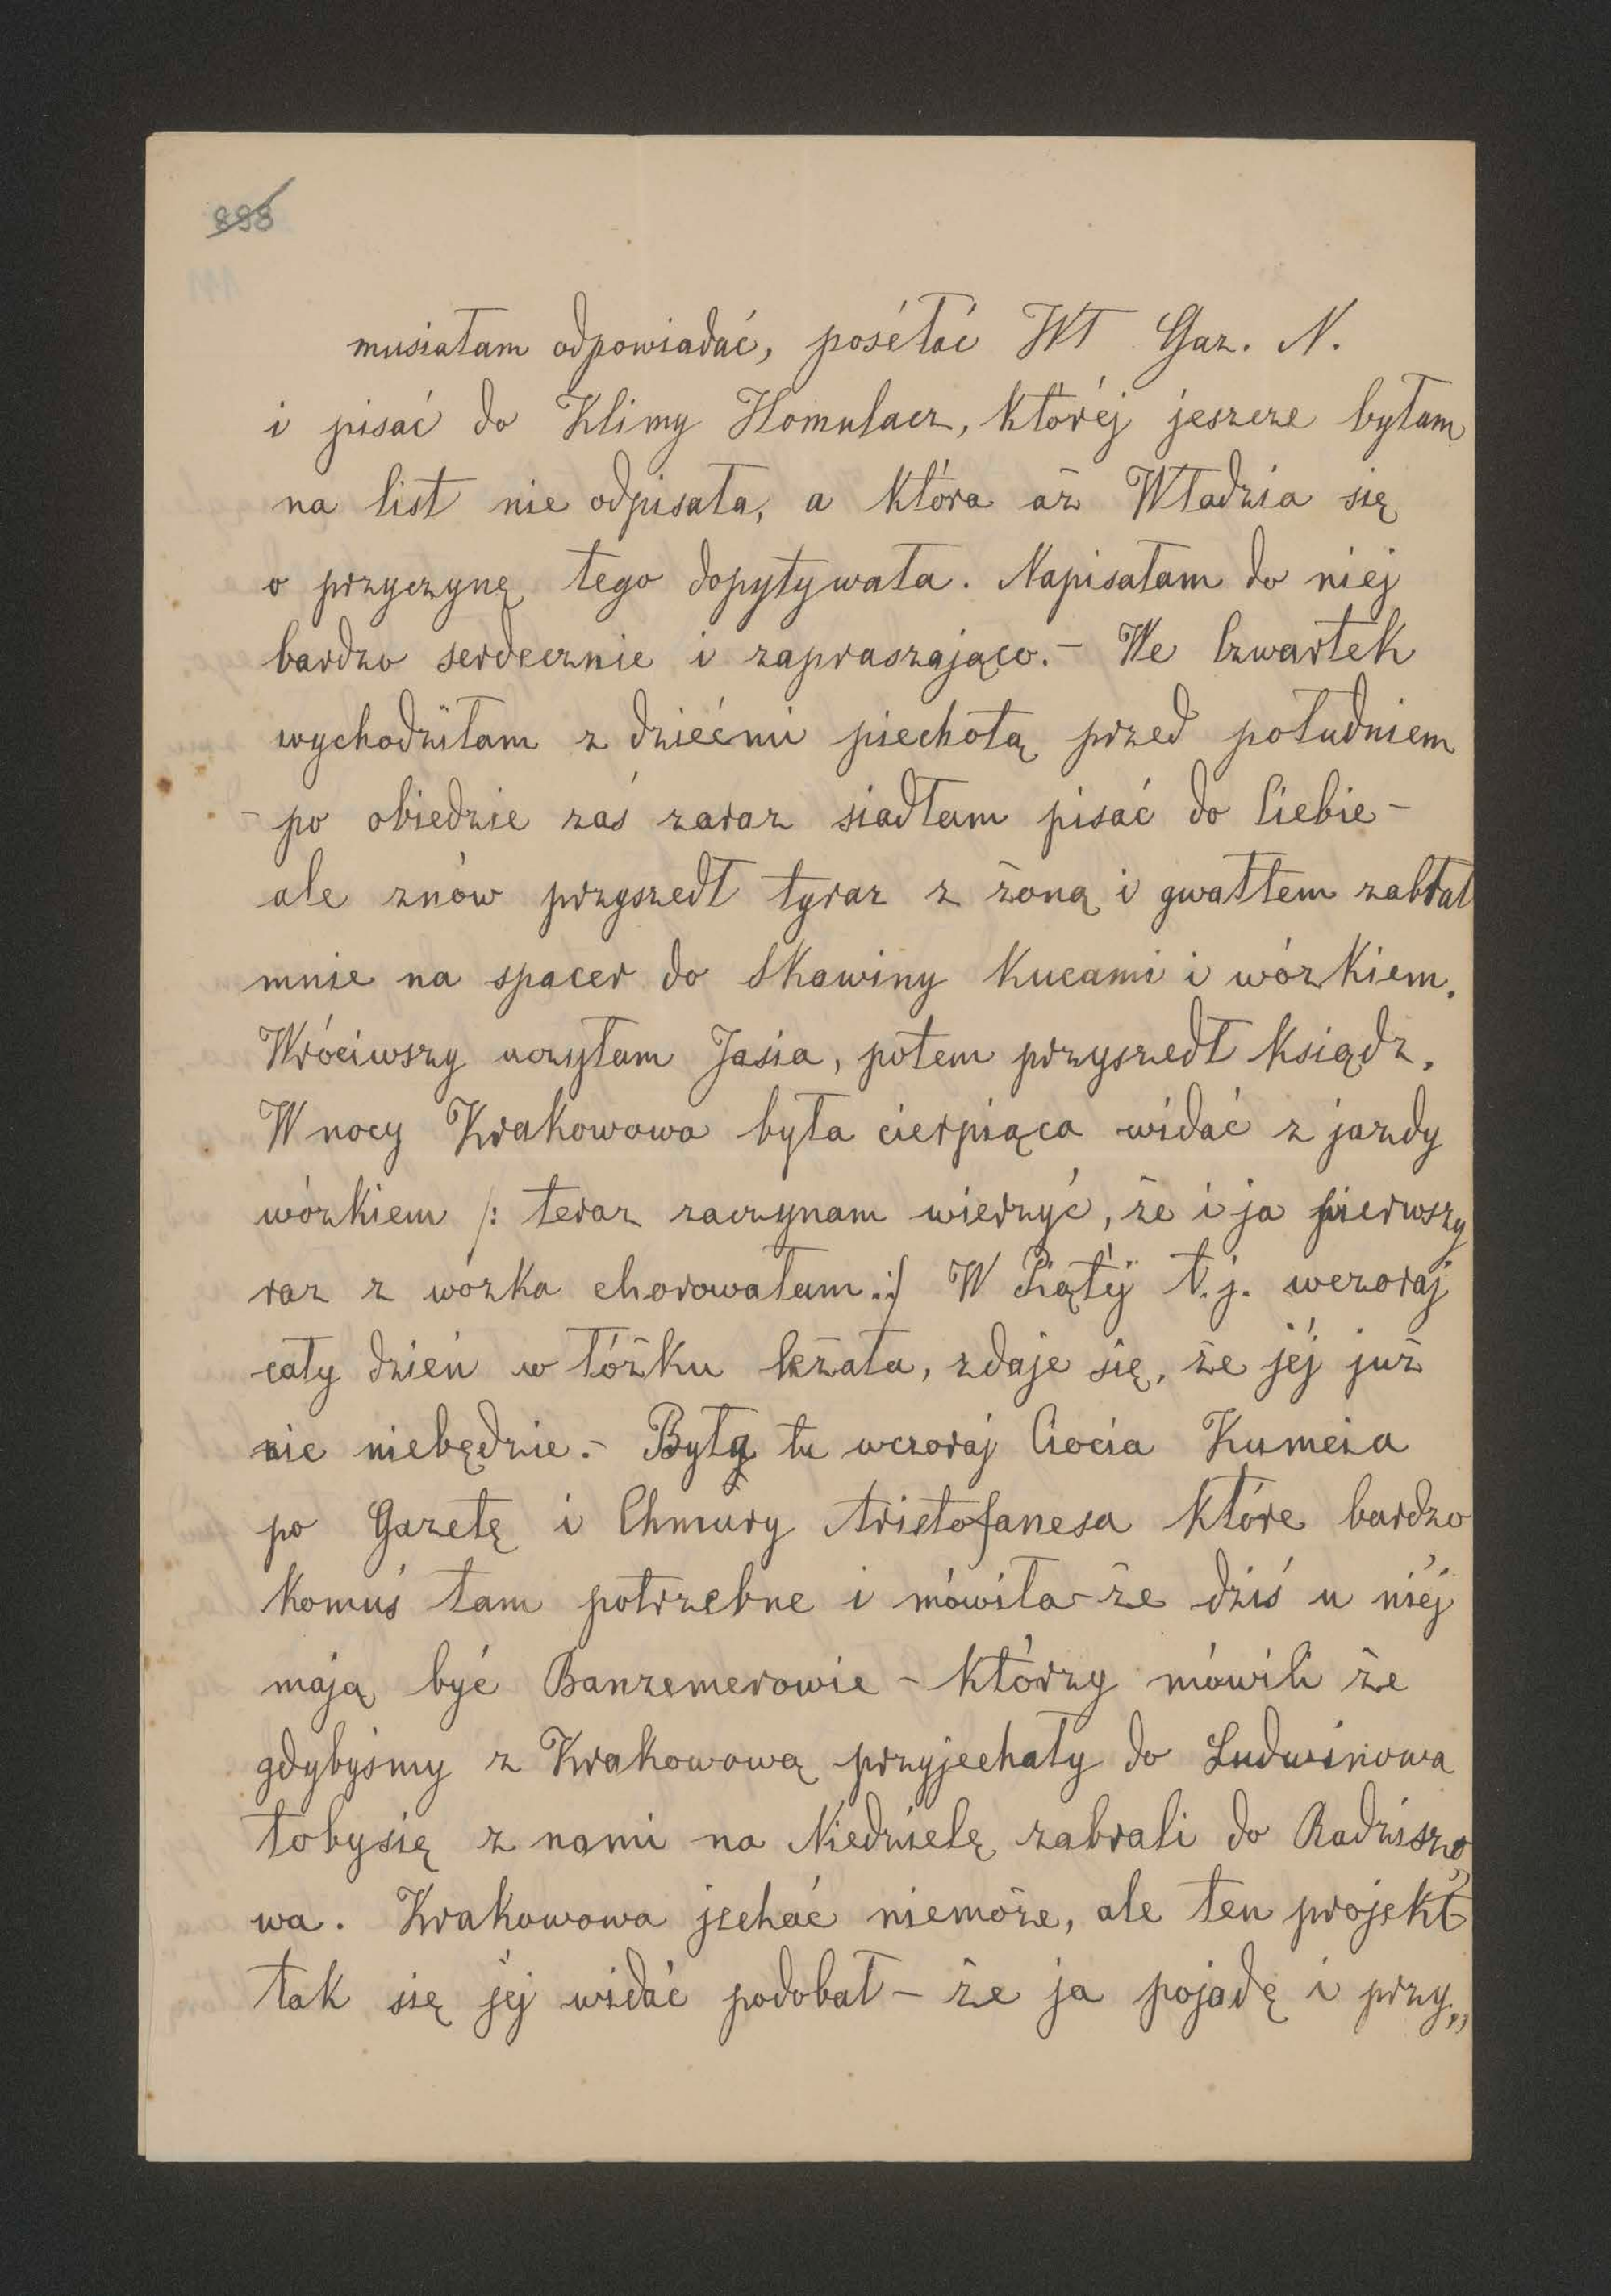 898
musiałam odpowiadać, poséłać Wł Gaz. N.
i pisać do Klimy Homulacz, któréj jeszcze byłam
na list nie odpisała, a która aż Władzia się
o przyczynę tego dopytywała. Napisałam do niej
bardzo serdecznie i zapraszająco. – We Czwartek
wychodziłam z dziećmi piechotą przed południem
– po obiedzie zaś zaraz siadłam pisać do Ciebie –
ale znów przyszedł tyraz z żoną i gwałtem zabrał
mnie na spacer do Skawiny Kucami i wózkiem.
Wróciwszy uczyłam Jasia, potem przyszedł Ksiądz.
W nocy Krakowowa była cierpiąca widać z jazdy
wózkiem /: teraz zaczynam wierzyć, że i ja pierwszy
raz z wózka chorowałam :/ W Piątéj t.j. wczoraj
cały dzień w łóżku leżała, zdaje się, że jéj już
nie niebędzie. – Była tu wczoraj Ciocia Kumeza
po Gazetę i Chmury Aristofanesa które bardzo
komuś tam potrzebne i mówiła – że dziś u niéj
mają być Banzemerowie – którzy mówili że
gdybyśmy z Krakowową przyjechały do Ludwinowa
tobysię z nami na Niedzielę zabrali do Radziszo„
wa. Krakowowa jechać niemoże, ale ten projekt
tak się jéj widać podobał – że ja pojadę i przy„